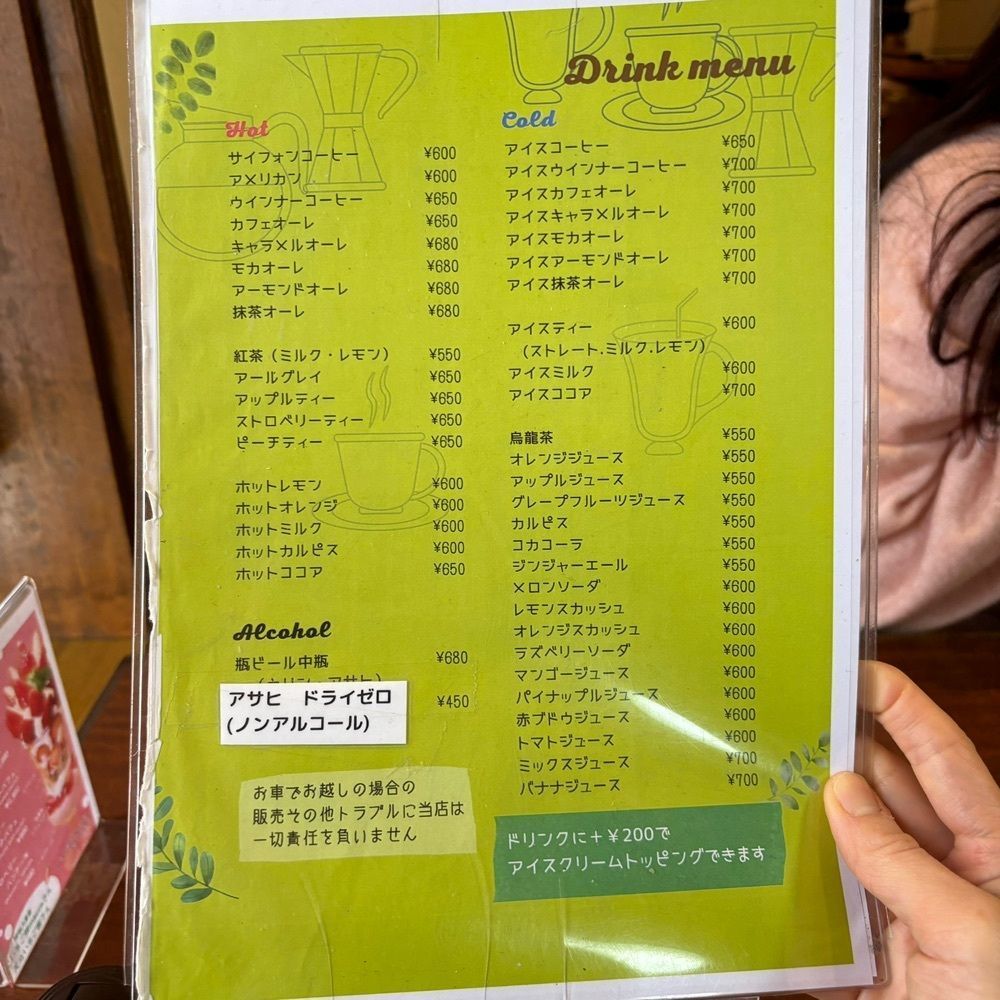 Drink menu
Hot
サイフォンコーヒー ¥600
アメリカン ¥600
ウインナーコーヒー ¥650
カフェオーレ ¥650
キャラメルオーレ ¥680
モカオーレ ¥680
アーモンドオーレ ¥680
抹茶オーレ ¥680
紅茶(ミルク・レモン) ¥550
アールグレイ ¥650
アップルティー ¥650
ストロベリーティー ¥650
ピーチティー ¥650
ホットレモン ¥600
ホットオレンジ ¥600
ホットミルク ¥600
ホットカルピス ¥600
ホットココア ¥650
Alcohol
瓶ビール中瓶 ¥680
アサヒ ドライゼロ ¥450
(ノンアルコール)
お車でお越しの場合の
販売その他トラブルに当店は
一切責任を負いません
Cold
アイスコーヒー ¥650
アイスウインナーコーヒー ¥700
アイスカフェオーレ ¥700
アイスキャラメルオーレ ¥700
アイスモカオーレ ¥700
アイスアーモンドオーレ ¥700
アイス抹茶オーレ ¥700
アイスティー ¥600
(ストレート.ミルク.レモン)
アイスミルク ¥600
アイスココア ¥700
烏龍茶 ¥550
オレンジジュース ¥550
アップルジュース ¥550
グレープフルーツジュース ¥550
カルピス ¥550
コカコーラ ¥550
ジンジャーエール ¥550
メロンソーダ ¥600
レモンスカッシュ ¥600
オレンジスカッシュ ¥600
ラズベリーソーダ ¥600
マンゴージュース ¥600
パイナップルジュース ¥600
赤ブドウジュース ¥600
トマトジュース ¥600
ミックスジュース ¥700
バナナジュース ¥700
ドリンクに+¥200で
アイスクリームトッピングできます